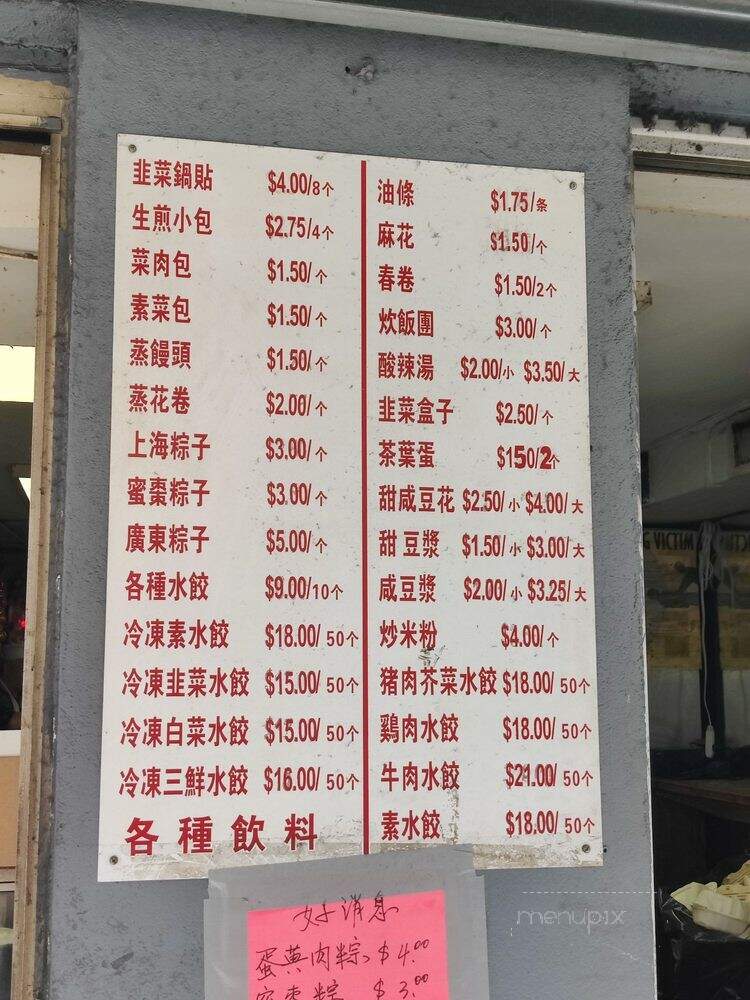 韭菜鍋貼 $4.00/8个
生煎小包 $2.75/4个
菜肉包 $1.50/个
素菜包 $1.50/个
蒸饅頭 $1.50/个
蒸花卷 $2.00/个
上海粽子 $3.00/个
蜜棗粽子 $3.00/个
廣東粽子 $5.00/个
各種水餃 $9.00/10个
冷凍素水餃 $18.00/50个
冷凍韭菜水餃 $15.00/50个
冷凍白菜水餃 $15.00/50个
冷凍三鮮水餃 $16.00/50个
各種飲料
油條 $1.75/条
麻花 $1.50/个
春卷 $1.50/2个
炊飯團 $3.00/个
酸辣湯 $2.00/小 $3.50/大
韭菜盒子 $2.50/个
茶葉蛋 $150/2个
甜咸豆花 $2.50/小 $4.00/大
甜豆漿 $1.50/小 $3.00/大
咸豆漿 $2.00/小 $3.25/大
炒米粉 $4.00/个
猪肉芥菜水餃 $18.00/50个
鷄肉水餃 $18.00/50个
牛肉水餃 $21.00/50个
素水餃 $18.00/50个
好消息
蛋黄肉粽 $4.00
$3.00
G VICTIM
menupix